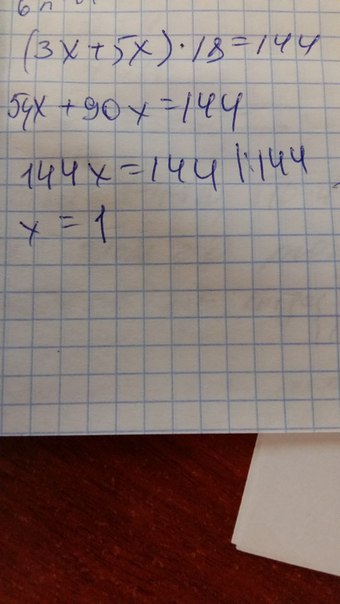 (3x+5x)·18=144
54x+90x=144
144x=144 |:144
x=1